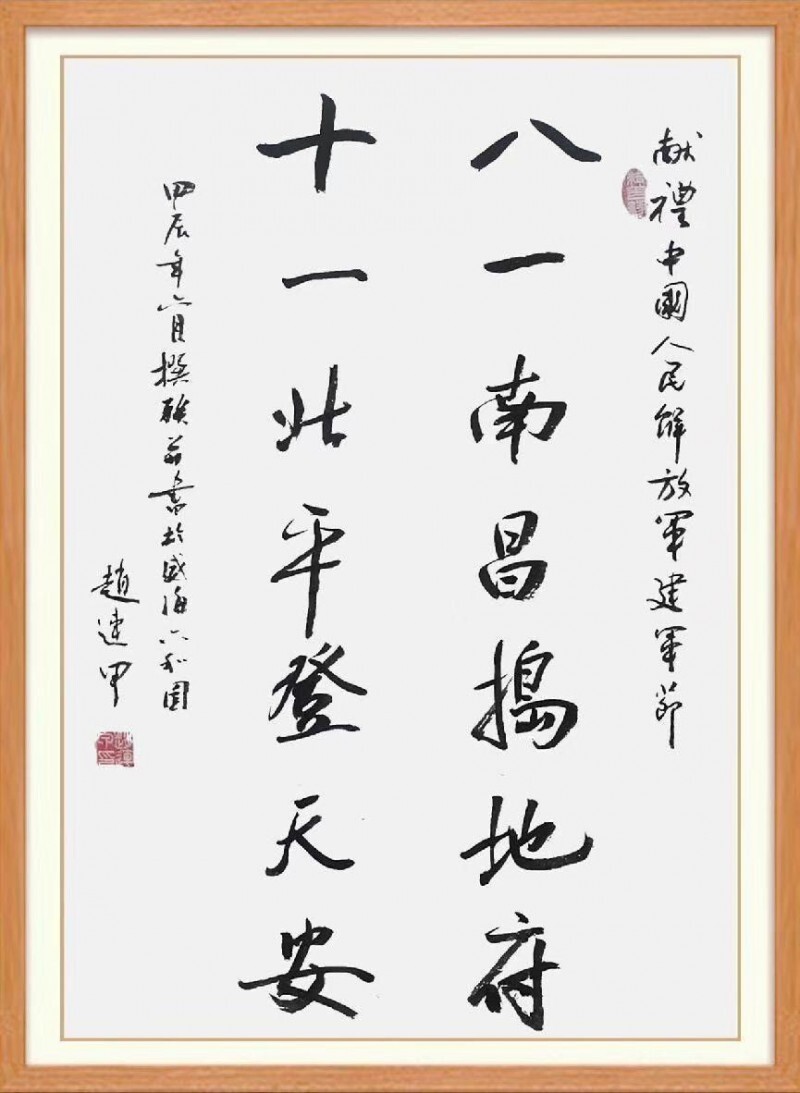 献禮中國人民解放军建军節
八一南昌搗地府
十一北平登天安
甲辰年六月撰联並書於威海六和園
趙連甲